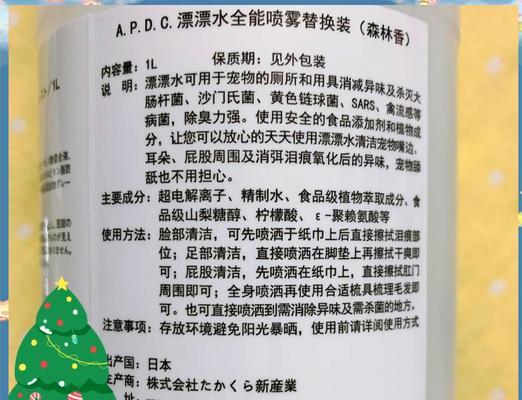 A.P.D.C.漂漂水全能喷雾替换装（森林香）
内容量：1L 保质期：见外包装
说 明：漂漂水可用于宠物的厕所和用具消减异味及杀灭大
肠杆菌、沙门氏菌、黄色链球菌、SARS、禽流感等
病菌，除臭力强。使用安全的食品添加剂和植物成
分，让您可以放心的天天使用漂漂水清洁宠物嘴边、
耳朵、屁股周围及消弭泪痕氧化后的异味，宠物舔
舐也不用担心。
主要成分：超电解离子、精制水、食品级植物萃取成分、食
品级山梨糖醇、柠檬酸、ε-聚赖氨酸等
使用方法：脸部清洁，可先喷洒于纸巾上后直接擦拭泪痕部
位；足部清洁，直接喷洒在脚垫上再擦干爽即
可；屁股清洁，先喷洒在纸巾上，直接擦拭肛门
周围即可；全身喷洒再使用合适梳具梳理毛发即
可。也可直接喷洒到需消除异味及需杀菌的地方。
注意事项：存放环境避免阳光暴晒，使用前请详阅使用方式
出产国：日本
生产商：株式会社たかくら新産業
／1L